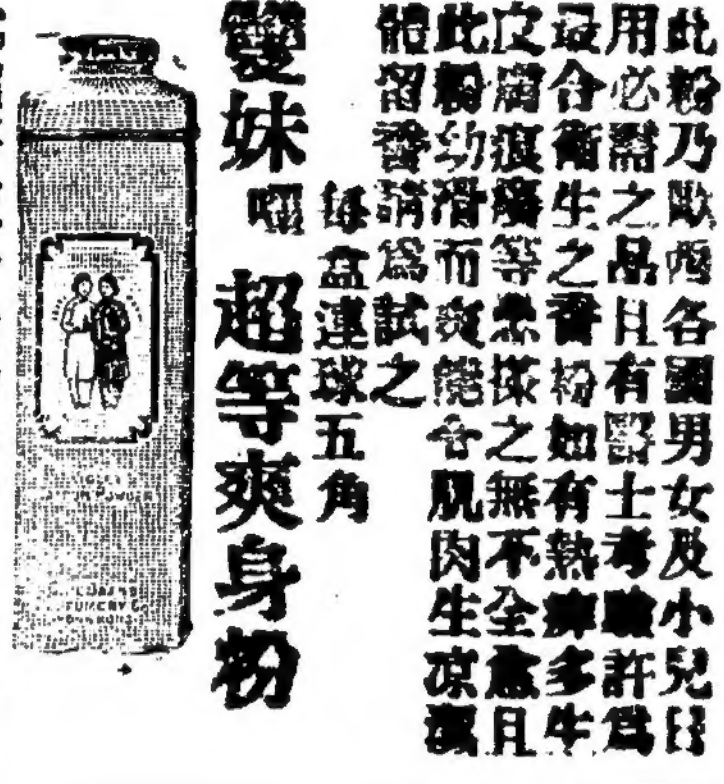 此粉乃歐西各國男女及小兒日
用必需之品且有醫士考驗許爲
最合衛生之香粉如有熱痱多牛
皮癬痕癢等患搽之無不全愈且
此粉幼滑而爽能令肌肉生凉滿
體留香請爲試之
每盒連球五角
雙妹嚜 超等爽身粉
POWDER